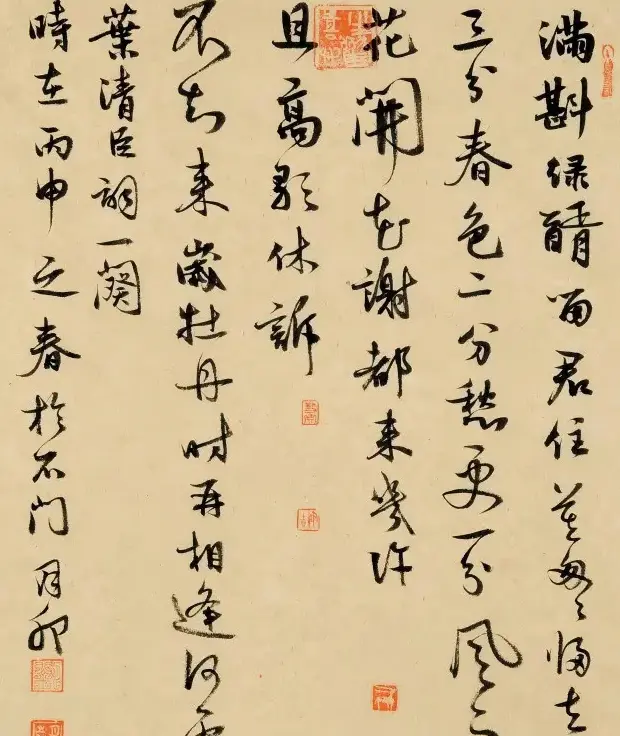 滿斟緑醑留君住莫匆々歸去
三分春色二分愁更一分風
花開花謝都来幾許
且高歌休訴
不知来歲牡丹时再相逢何
葉清臣詞一闋
時在丙申之春於石門